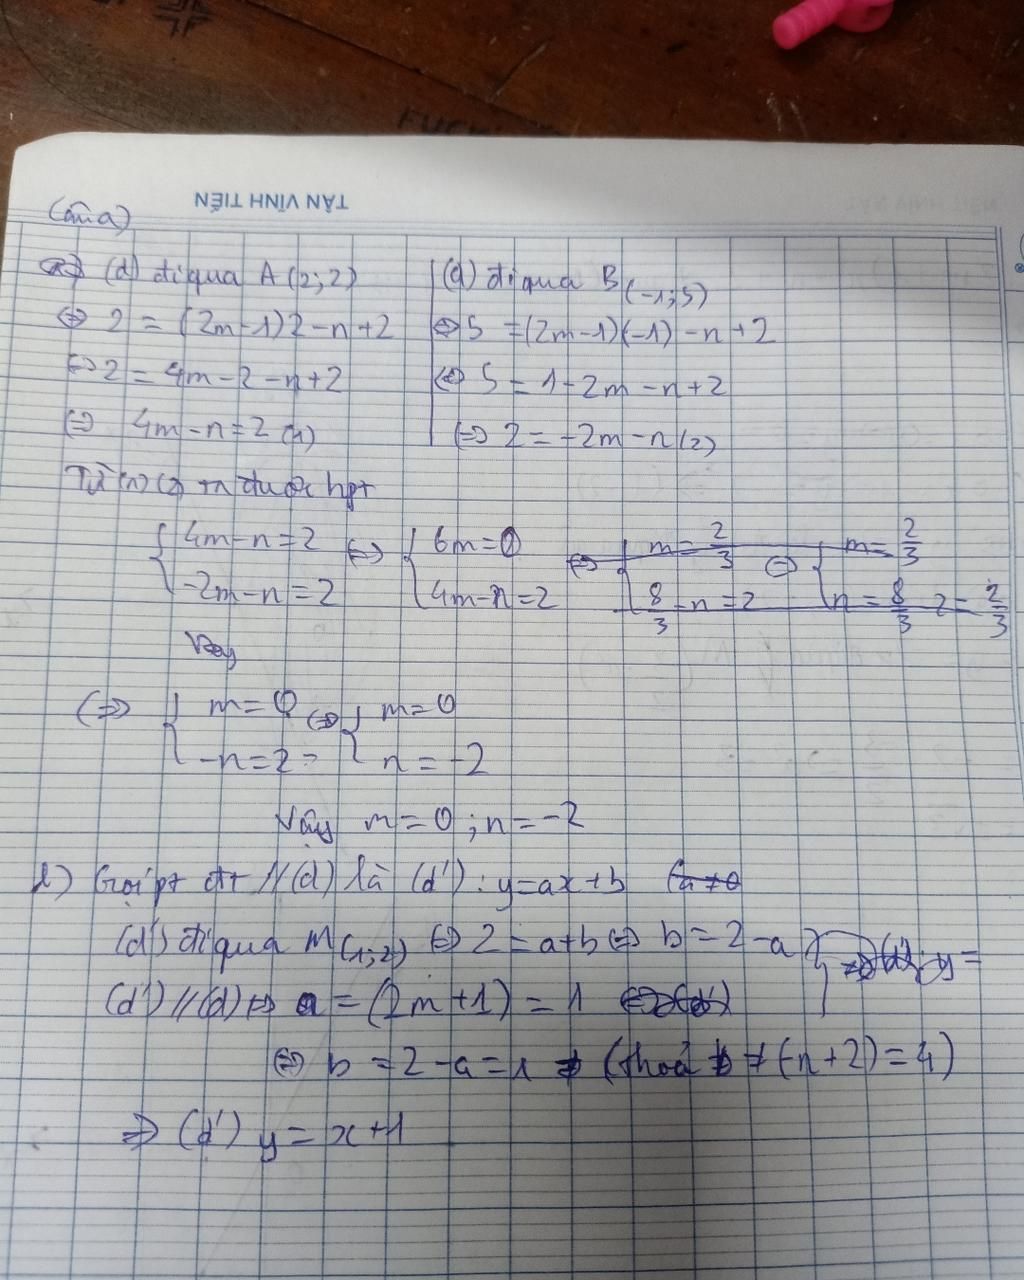 TÂN VĨNH TIẾN
Câu a)
(d) đi qua A(2;2)
⇔ 2 = (2m-1)2-n+2
⇔ 2 = 4m-2-n+2
⇔ 4m-n=2 (1)
(d) đi qua B(-1;5)
⇔ 5 =(2m-1)(-1)-n+2
⇔ 5 = 1-2m-n+2
⇔ 2 = -2m-n (2)
Từ (1) (2) ta được hpt
{ 4m-n=2 ⇔ { 6m=0 ⇔ { m=2/3 ⇔ { m=2/3
-2m-n=2 4m-n=2 8/3-n=2 n=8/3 2=2/3
Vậy
⇔ { m=0 ⇔ { m=0
-n=2 n=-2
Vậy m=0; n=-2
b) Gọi pt đt //(d) là (d'): y=ax+b (a≠0
(d') đi qua M(1;2) ⇔ 2=a+b ⇔ b=2-a } ⇒ (d'): y=
(d') //(d) ⇔ a = (2m+1) = 1 ⇔ (d')
⇔ b = 2-a=1 (thoả b ≠ (-n+2)=4)
⇒ (d') y = x+1